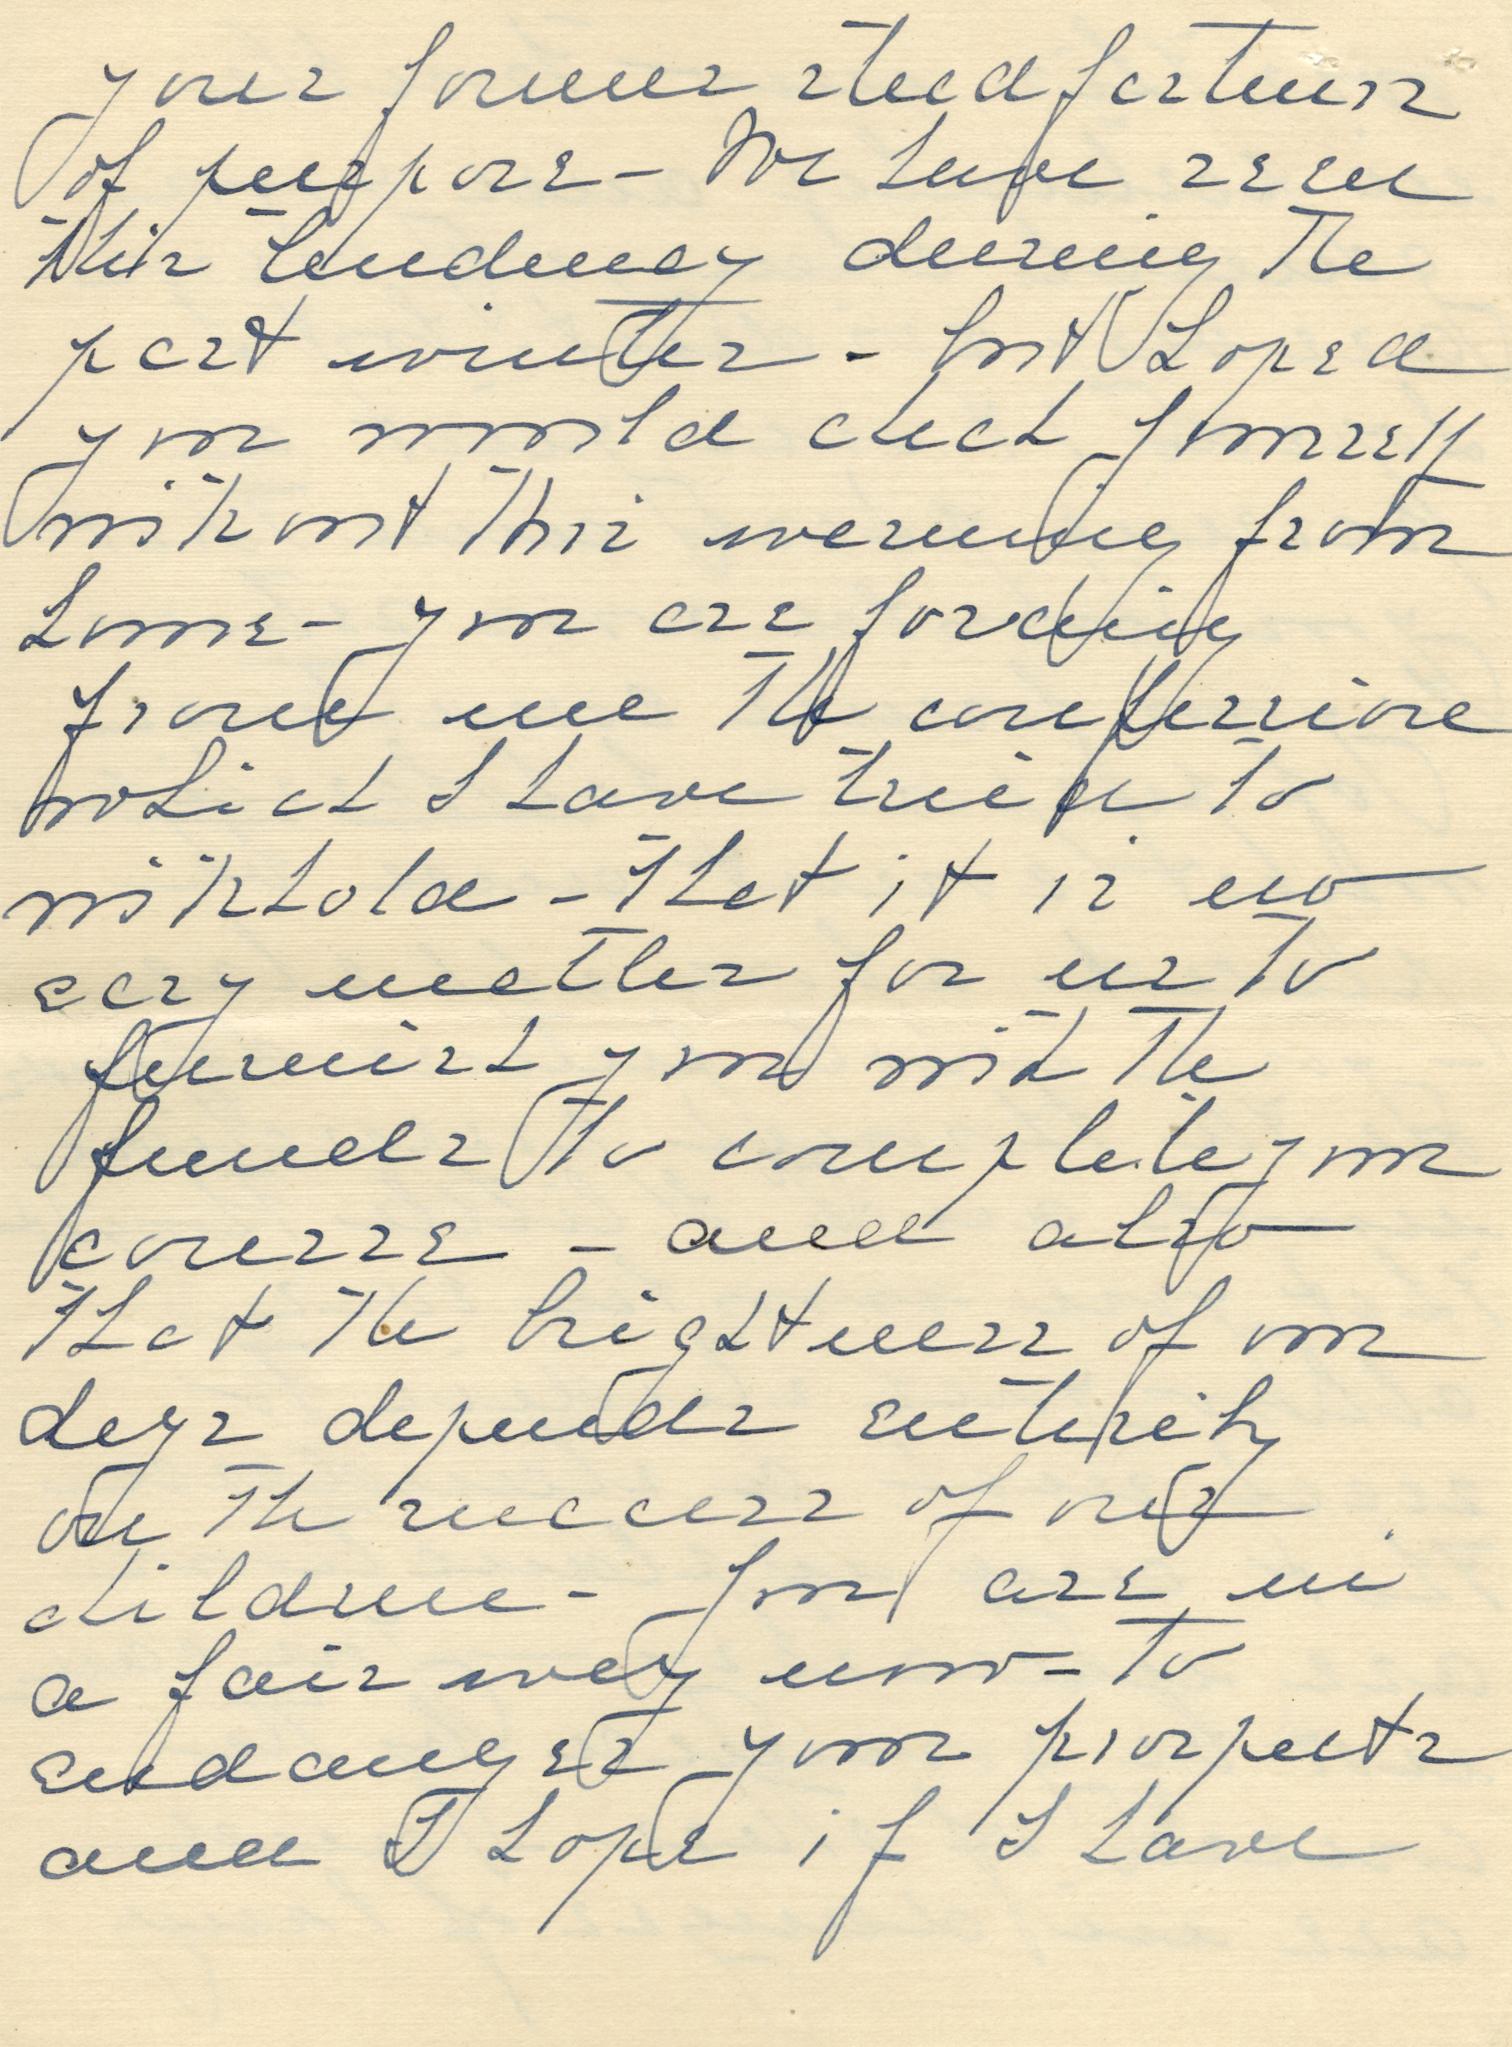 your former steadfastness
of purpose - We have seen
this tendency during the
past winter - but hoped
you would check yourself
without this warning from
home - you are forcing
from me the confession
which I have tried to
withhold - that it is no
easy matter for us to
furnish you with the
funds to complete your
course - and also
that the brightness of our
days depends entirely
on the success of our
children - You are in
a fair way now - to
endanger your prospects
and I hope if I have